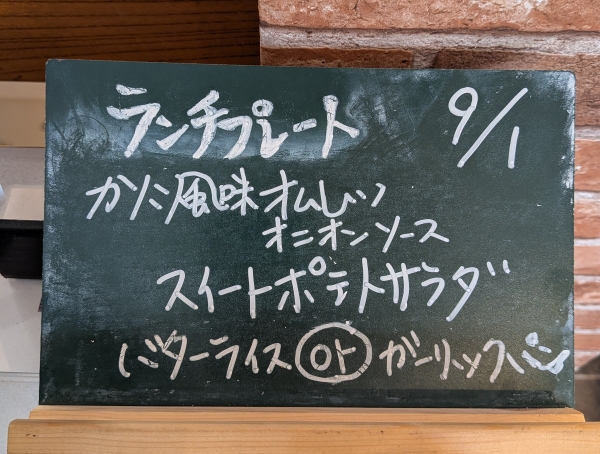 ランチプレート 9/1
カニ風味オムレツ
オニオンソース
スイートポテトサラダ
バターライス or ガーリックパン